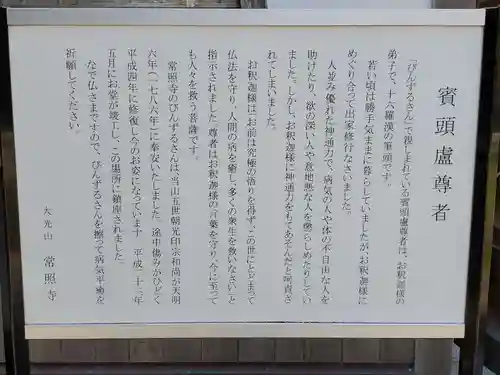 賓頭盧尊者
「びんずるさん」で親しまれている賓頭盧尊者は、お釈迦様の
弟子で、十六羅漢の筆頭です。
若い頃は勝手気ままに暮らしていましたが、お釈迦様に
めぐり合って出家修行なさいました。
人並み優れた神通力で、病気の人や体の不自由な人を
助けたり、欲の深い人や意地悪な人を懲らしめたりしてい
ました。しかし、お釈迦様に神通力をもてあそんだと呵責さ
れてしまいました。
お釈迦様は「お前は究極の悟りを得ず、この世にとどまって
仏法を守り、人間の病を癒し、多くの衆生を救いなさい」と
指示されました。尊者はお釈迦様の言葉を守り、今に至って
も人々を救う菩薩です。
常照寺のびんずるさんは、当山五世朝光印宗和尚が天明
六年(一七八六年)に奉安いたしました。途中傷みがひどく
平成四年に修復し今のお姿になっています。平成二十三年
五月にお堂が竣工し、この場所に鎮座されました。
なで仏さまですので、びんずるさんを擦って病気平癒を
祈願してください。
大光山 常照寺